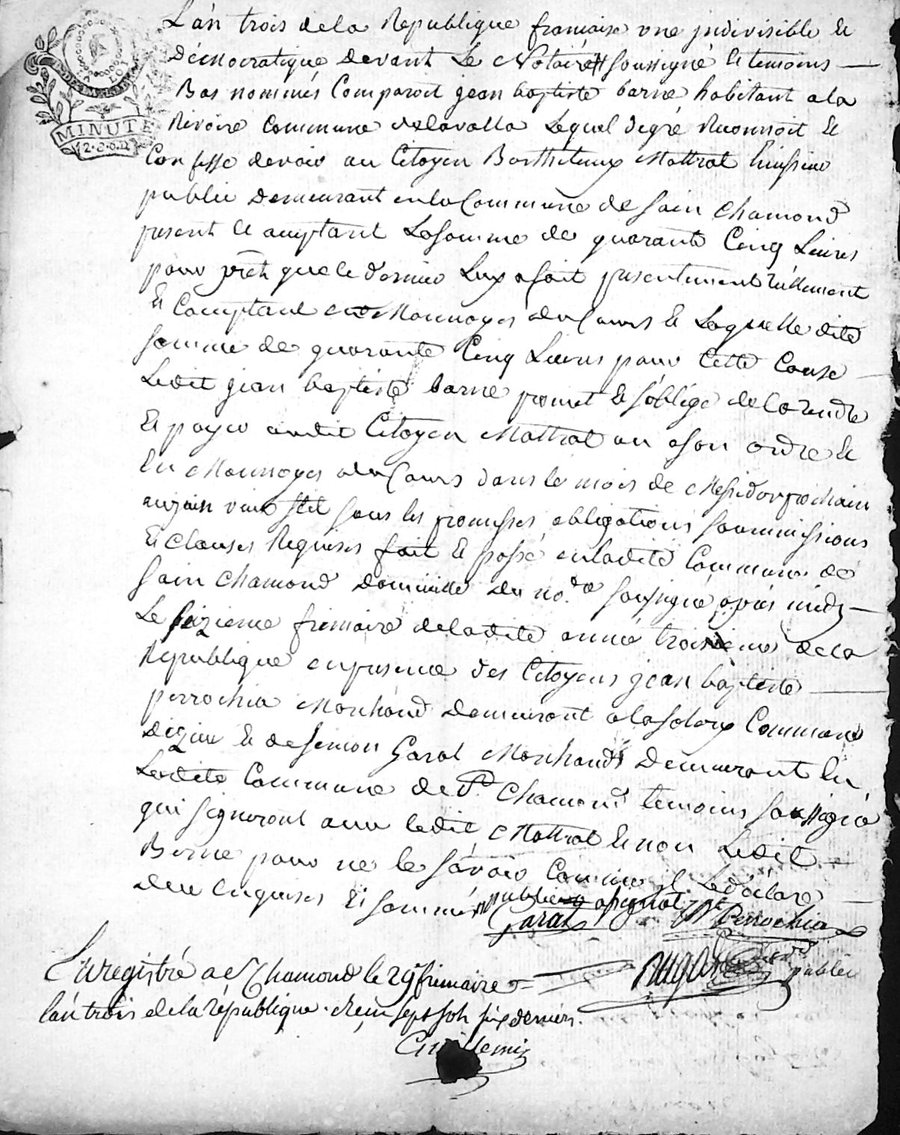 MINUTE
L'an trois dela Republique francaise une indivisible et
démocratique devant Le Notaire soussigné Et temoins
Bas nommés Comparoit jean baptiste barne habitant a la
Rivoire Commune delavalla Lequel degré Reconnoit Et
Confesse devoir au Citoyen Barthelemy Mattrat huissier
public Demeurant enla Commune de Sain Chamond
present Et acceptant La somme de quarante Cinq Livres
pour prêt que ce dernier Luy a fait presentement réellement
Et Comptant en Monnoyes du Cours Et Laquelle dite
somme de quarante Cinq Livres pour Cette Cause
Ledit jean baptiste barne promet Et s'oblige de La rendre
Et payer audit Citoyen Mattrat ou a son ordre Et
En Monnoyes du Cours dans le mois de Messidor prochain
ou juin vieux stil sous les promesses obligations soummissions
Et Clauses Requises fait Et passé enladite Commune de
Sain Chamond Domicille du no.re soussigné après midy
Le seizieme frimaire deladite année troisieme de la
Republique en presence des Citoyens jean baptiste
perrochia Marchand demeurant a la Commune
dizieu Et de simon Garat Marchand Demeurant En
Ladite Commune de St Chamond temoins soussigné
qui signeront avec ledit Mattrat Et non Ledit
Barne pour ne le savoir Comme il L'a déclaré
de ce Enquises Et sommé
Garat Perrochia
public
Enregistré a St Chamond le 29 frimaire
l'an trois de la république. Reçu sept sols six deniers.